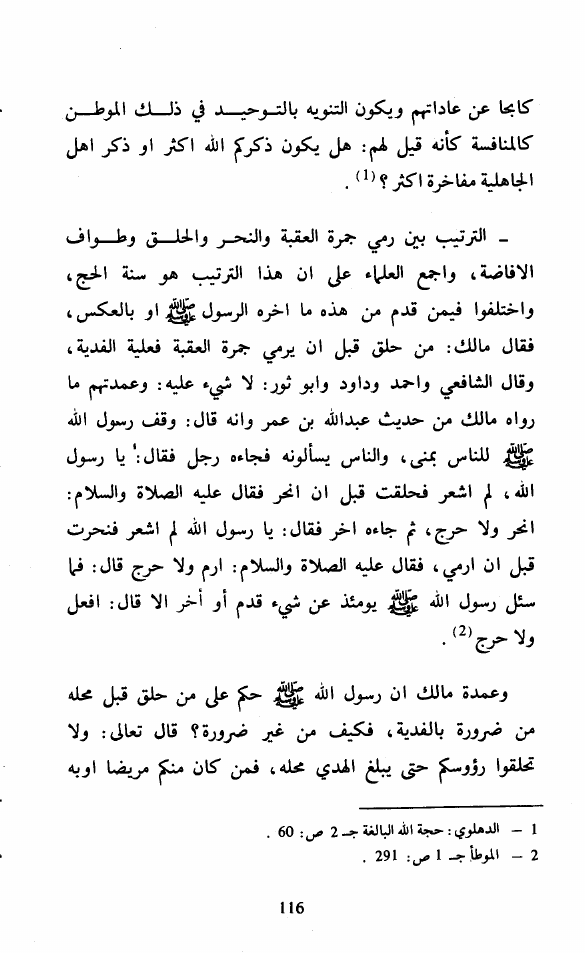 كابحا عن عاداتهم ويكون التنويه بالتوحيد في ذلك الموطن
كالمنافسة كأنه قيل لهم: هل يكون ذكركم الله اكثر او ذكر اهل
الجاهلية مفاخرة اكثر؟(1).
– الترتيب بين رمي جمرة العقبة والنحر والحلق وطواف
الافاضة، واجمع العلماء على ان هذا الترتيب هو سنة الحج،
واختلفوا فيمن قدم من هذه ما اخره الرسول ﷺ او بالعكس،
فقال مالك: من حلق قبل ان يرمي جمرة العقبة فعلية الفدية،
وقال الشافعي واحمد وداود وابو ثور: لا شيء عليه: وعمدتهم ما
رواه مالك من حديث عبدالله بن عمر وانه قال: وقف رسول الله
ﷺ للناس بمنى، والناس يسألونه فجاءه رجل فقال: يا رسول
الله، لم اشعر فحلقت قبل ان انحر فقال عليه الصلاة والسلام:
انحر ولا حرج، ثم جاءه اخر فقال: يا رسول الله لم اشعر فنحرت
قبل ان ارمي، فقال عليه الصلاة والسلام: ارم ولا حرج قال: فما
سئل رسول الله ﷺ يومئذ عن شيء قدم أو أخر الا قال: افعل
ولا حرج(2).
وعمدة مالك ان رسول الله ﷺ حكم على من حلق قبل محله
من ضرورة بالفدية، فكيف من غير ضرورة؟ قال تعالى: ولا
تحلقوا رؤوسكم حتى يبلغ الهدي محله، فمن كان منكم مريضا اوبه
1 – الدهلوي: حجة الله البالغة جـ 2 ص: 60.
2 – الموطأ جـ 1 ص: 291.
116